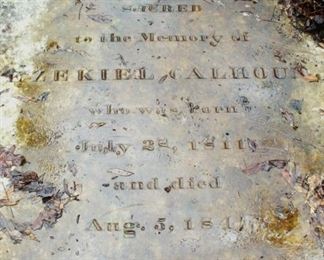 SACRED
to the Memory of
EZEKIEL CALHOUN
who was born
July 22, 1811
and died
Aug. 5, 184